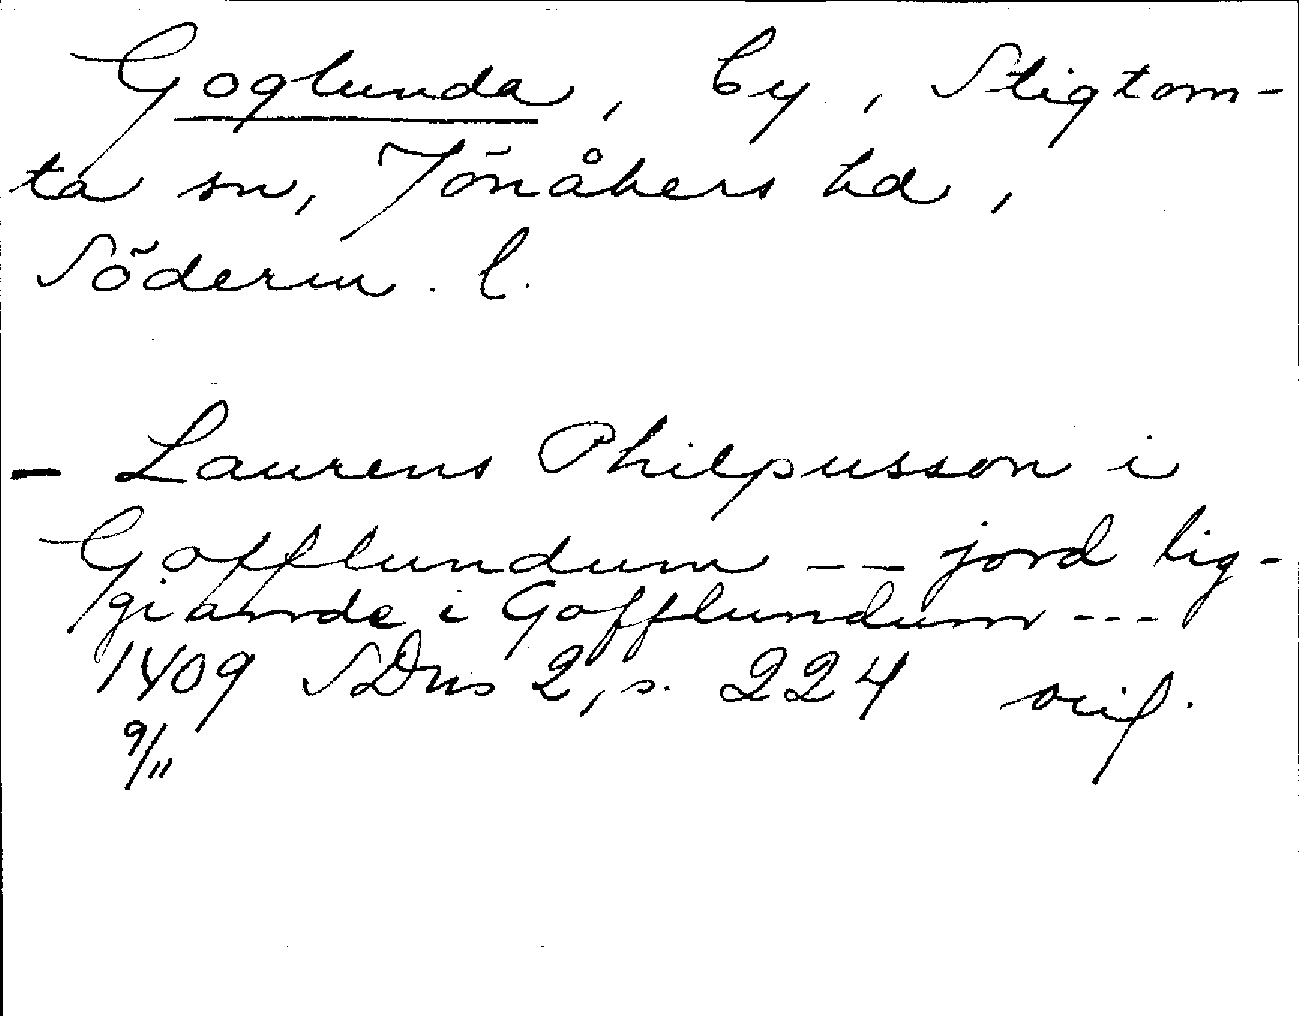 Goglunda, by, Stigtom-
ta sn, Jönåkers hd,
Söderm. l.
- Laurens Philpusson i
Gofflundum -- jord lig-
giande i Gofflundum ---
1409 SDns 2, s. 224 orig.
9/11